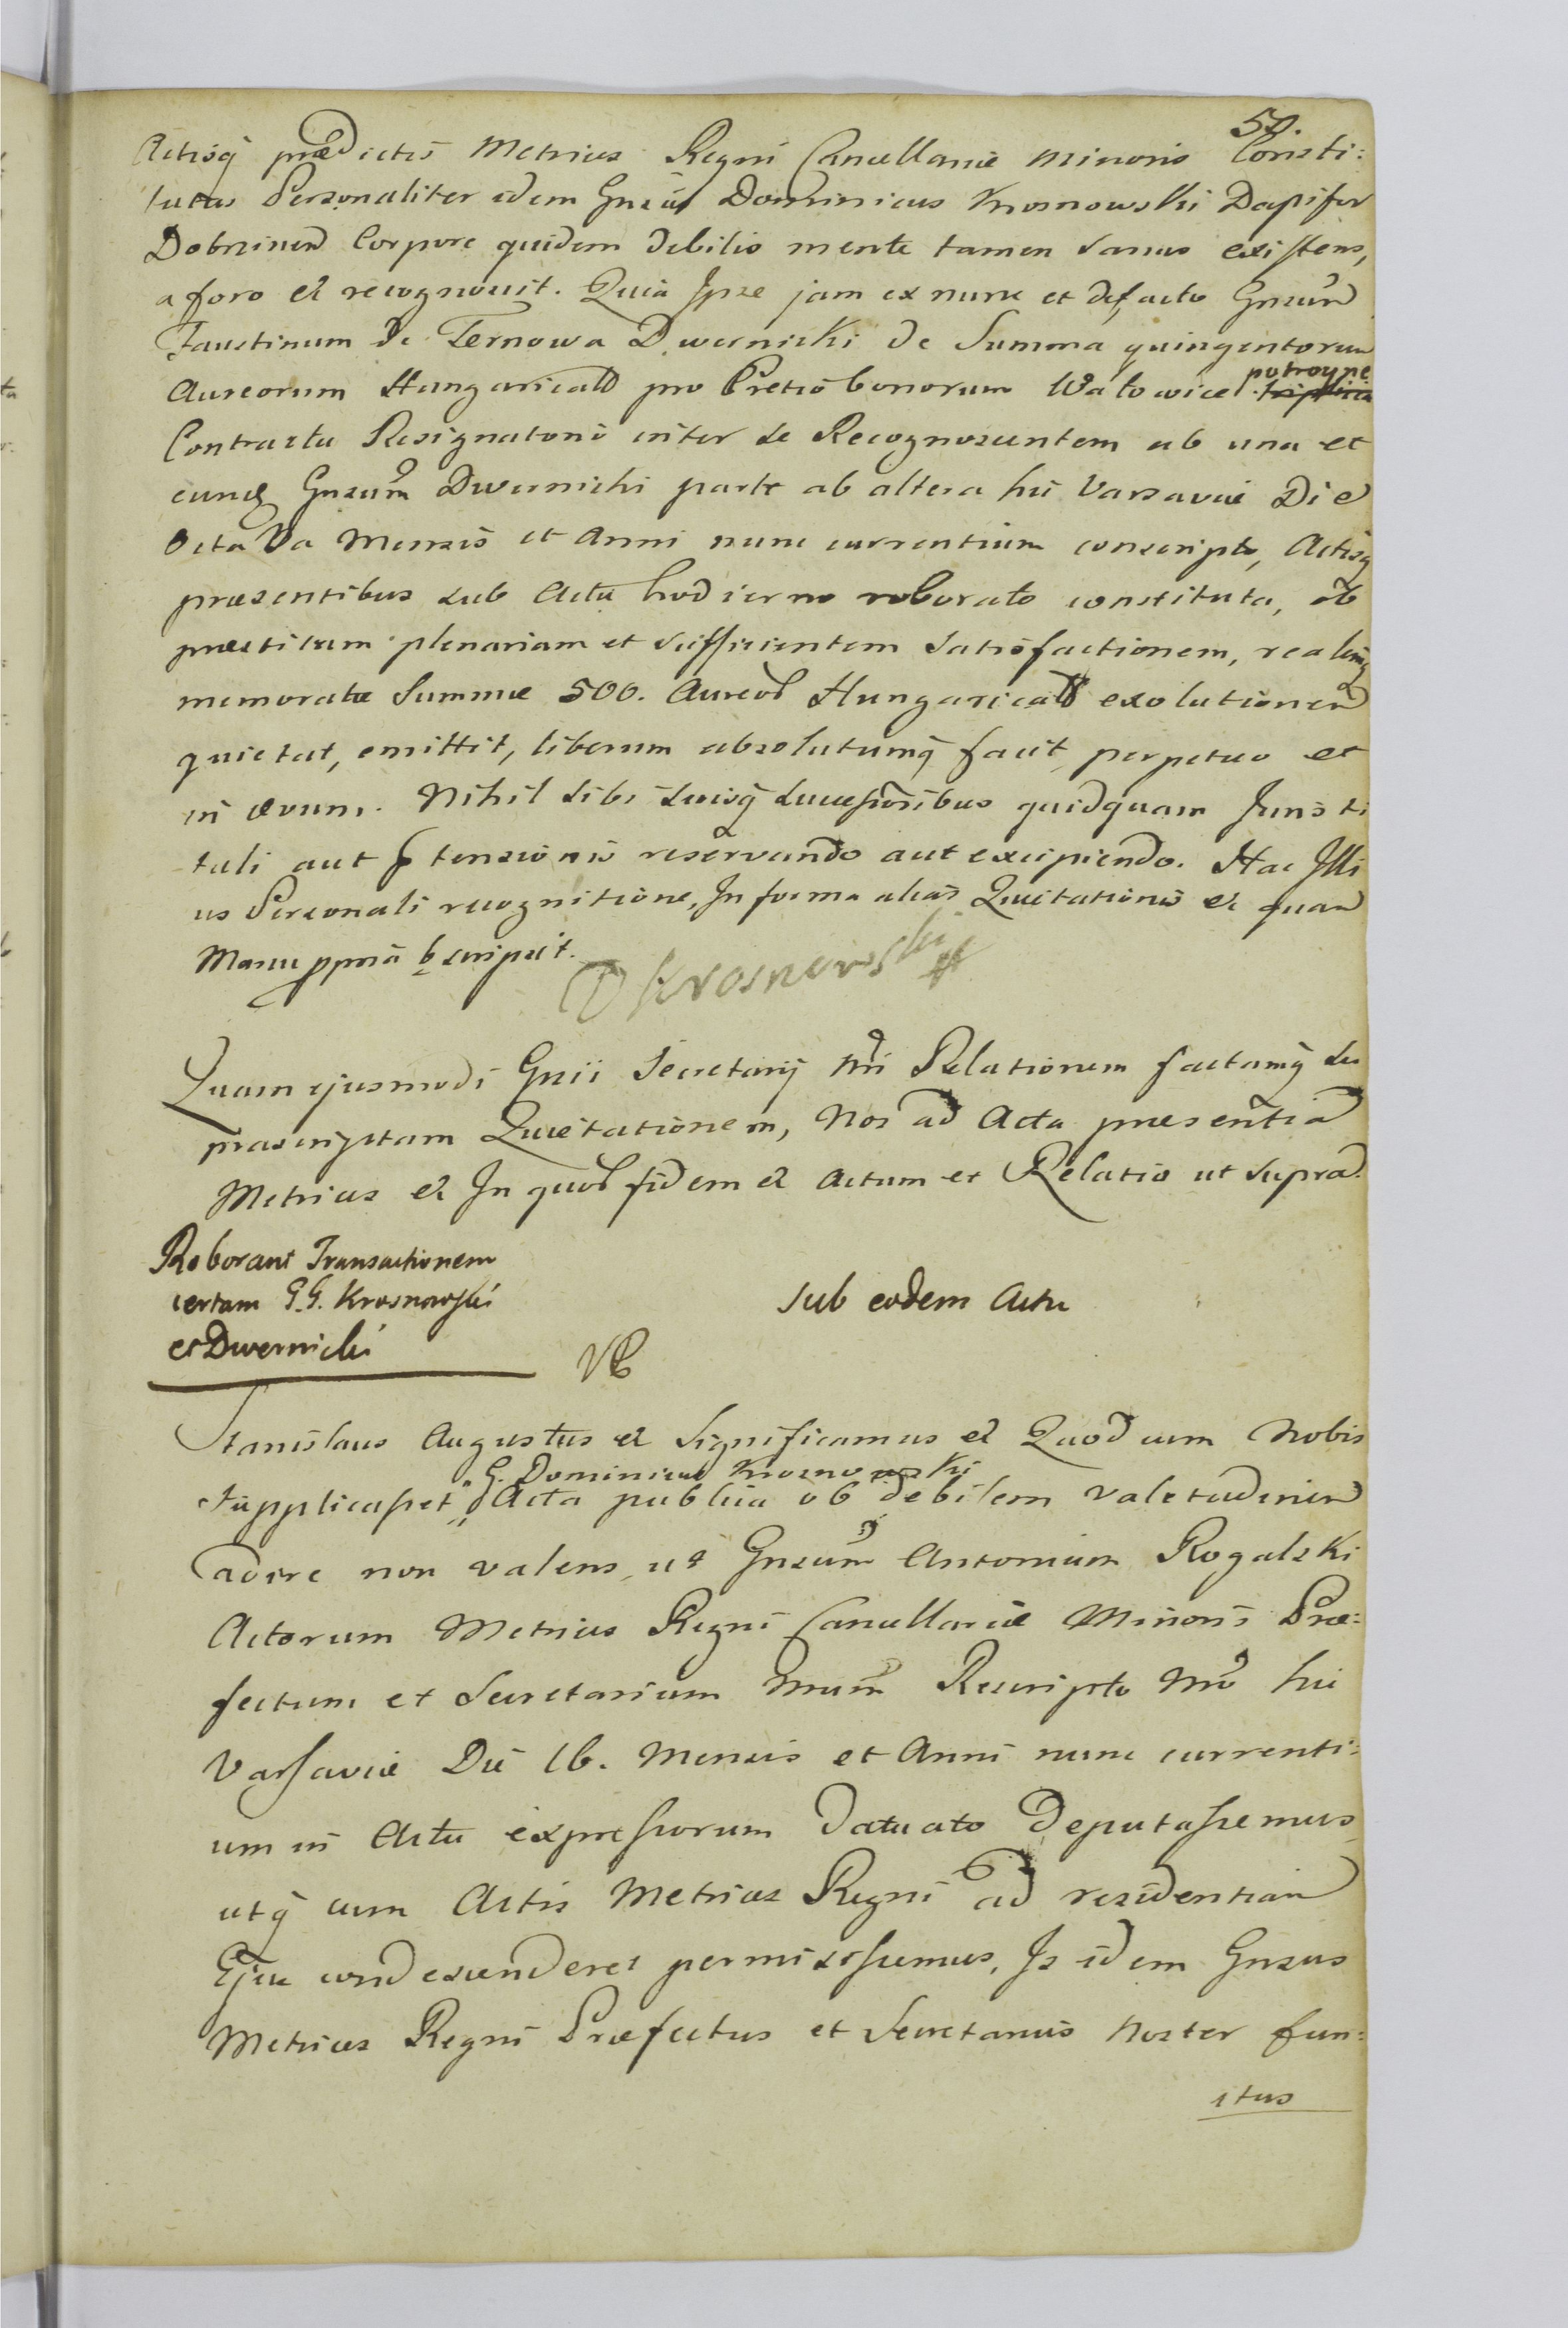 57.
Actisq̃ prædictis Metrices Regni Cancellariæ minoris Consti:
tutus Personaliter idem Gnsus Dominicus Krosnowski Dapifer
Dobrzinen Corpore quidem debilis mente tamen sanus existens,
a foro et recognovit. Quia Ipse jam ex nunc et de facto Gnsum
Faustinum de Ternowa Dwernicki de Summa quingentorum
potroyne
Aureorum Hungarical pro Pretio bonorum Watowice triplica
Contractu Resignationis inter se Recognoscentem ab una et
eundq Gnsum Dwernicki parte ab altera hic Varsaviæ Die
Octava Mensis et Anni nunc currentium conscripto, Actisq
præsentibus sub Actu hodierno roborato constituta, ob
præstitam plenariam et sufficientem satisfactionem, realemq
memoratæ Summæ 500. Aureor Hungarical exolutionem
quietat, emittit, liberum absolutumq̃ facit, perpetuo et
in ævum. Nihil sibi suisq̃ successoribus quidquam Juris ti
tuli aut ptensionis reservando aut excipiendo. Hac Illi
us Personali recognitione, In forma alias Quietationis et quam
Manu ppria bscripsit.
D Krosnowski
Quam ejusmodi Gnii Secretarij Nri Relationem factamq̃ su
prascriptam Quietationem, Nos ad Acta præsentia
Metrices et In quor fidem et Actum et Relatio ut supra.
Roborant Transactionem
certam G.G. Krosnowski
et Dwernicki
Sub eodem Actu
Stanislaus Augustus et Significamus et Quod cum Nobis
G. Dominicus Krosnowski
supplicasset Acta publica ob debilem valetudinem
adire non valens, ut Gnsum Antonium Rogalski
Actorum Metrices Regni Cancellariæ Minoris Præ:
fectum et Secretarium Nrum Rescripto Nro hic
Varsaviæ Die 16. Mensis et Anni nunc currenti:
um in Actu expressorum Datuato Deputassemus
utq̃ cum Actis Metrices Regni ad residentiam
Ejus condescenderet permisissemus, Is idem Gnsus
Metrices Regni Præfectus et Secretarius Noster fun:
ctus